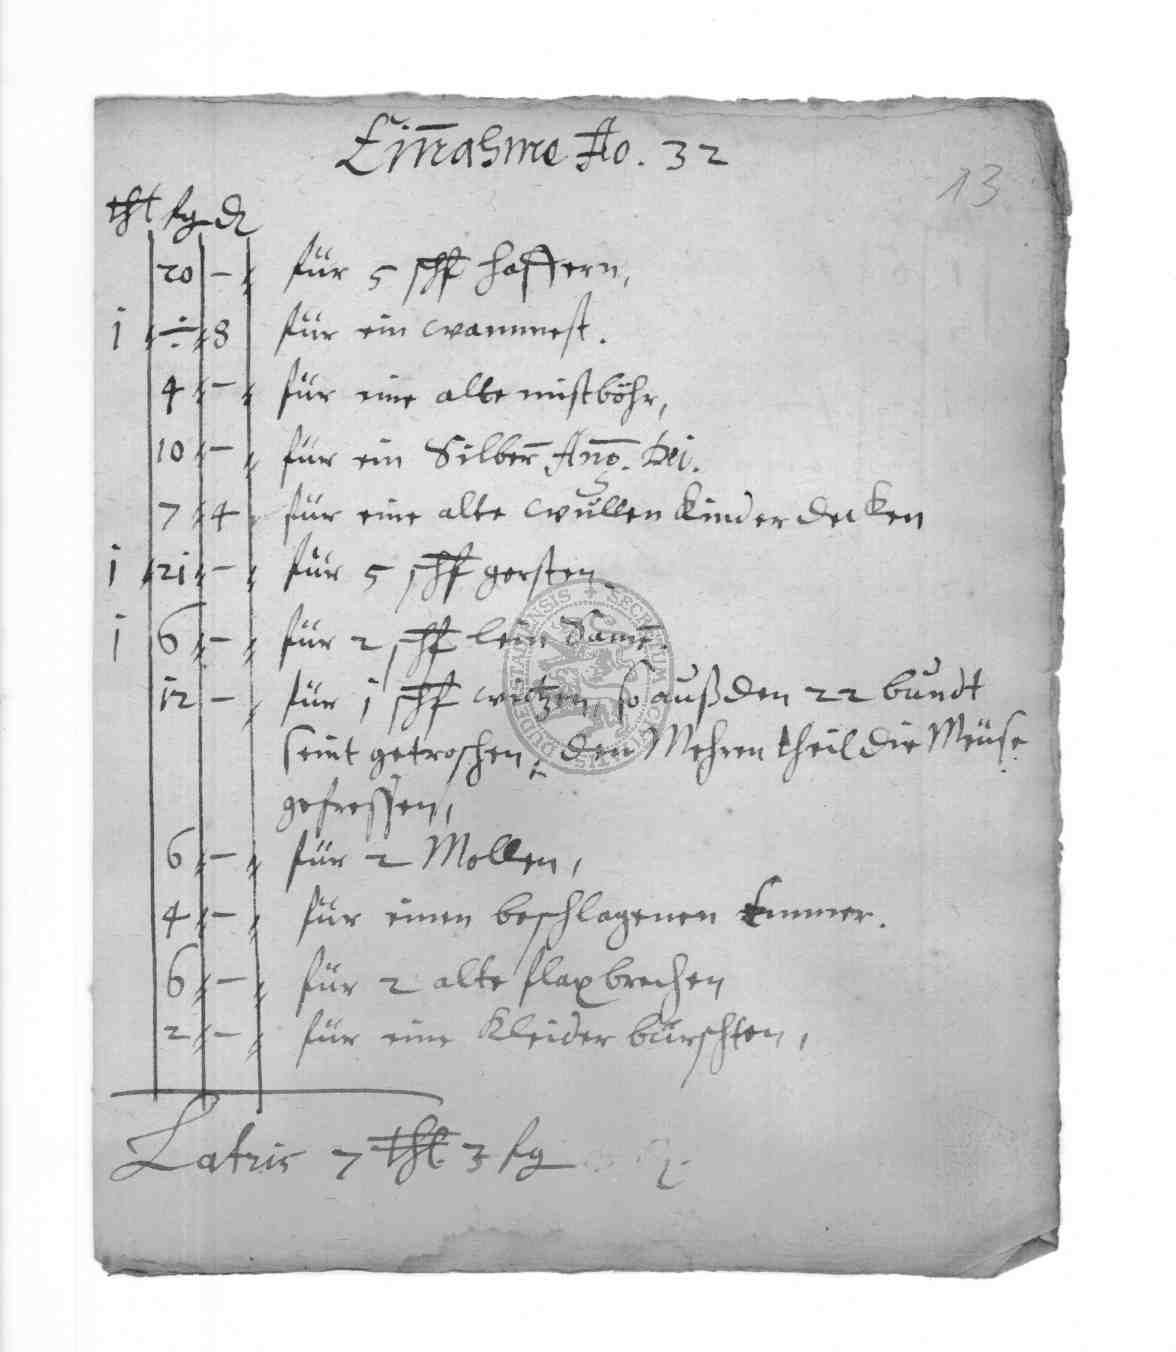 Einnahme Ao. 32
13
thl sg ₰
20 — für 5 schf haffern,
i ÷ 8 für ein wammest.
4 — für eine alte mistböhr,
10 — für ein Silbern Anō. Dei.
7 4 für eine alte wüllen Kinder decken
i 21 — für 5 schf gersten
i 6 — für 2 schf lein Samē.
12 — für i schf witzen, so auß den 22 bundt
seint getroschen, den Mehren theil die Meüse
gefressen,
6 — für 2 Mollen,
4 — für einen beschlagenen Emmer.
6 — für 2 alte flaxbrechen
2 — für eine Kleider bürschten,
Latris 7 thl. 3 sg